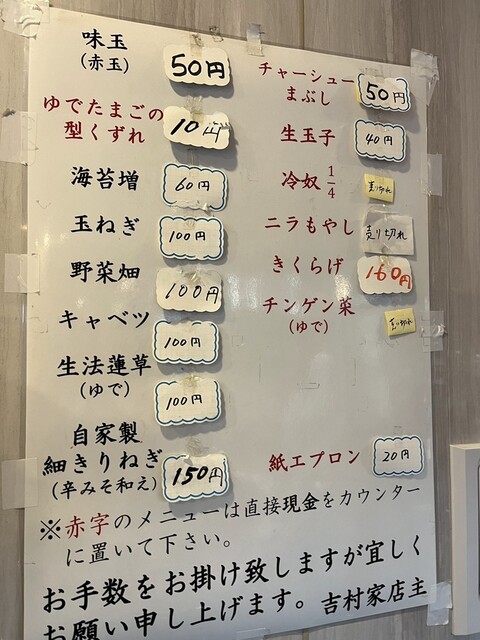 味玉
(赤玉)
50円
ゆでたまごの
型くずれ
10円
海苔増
60円
玉ねぎ
100円
野菜畑
100円
キャベツ
100円
生法蓮草
(ゆで)
100円
自家製
細きりねぎ
(辛みそ和え)
150円
チャーシュー
まぶし
50円
生玉子
40円
冷奴 1/4
売り切れ
ニラもやし
売り切れ
きくらげ
160円
チンゲン菜
(ゆで)
売り切れ
紙エプロン
20円
※赤字のメニューは直接現金をカウンター
に置いて下さい。
お手数をお掛け致しますが宜しく
お願い申し上げます。吉村家店主